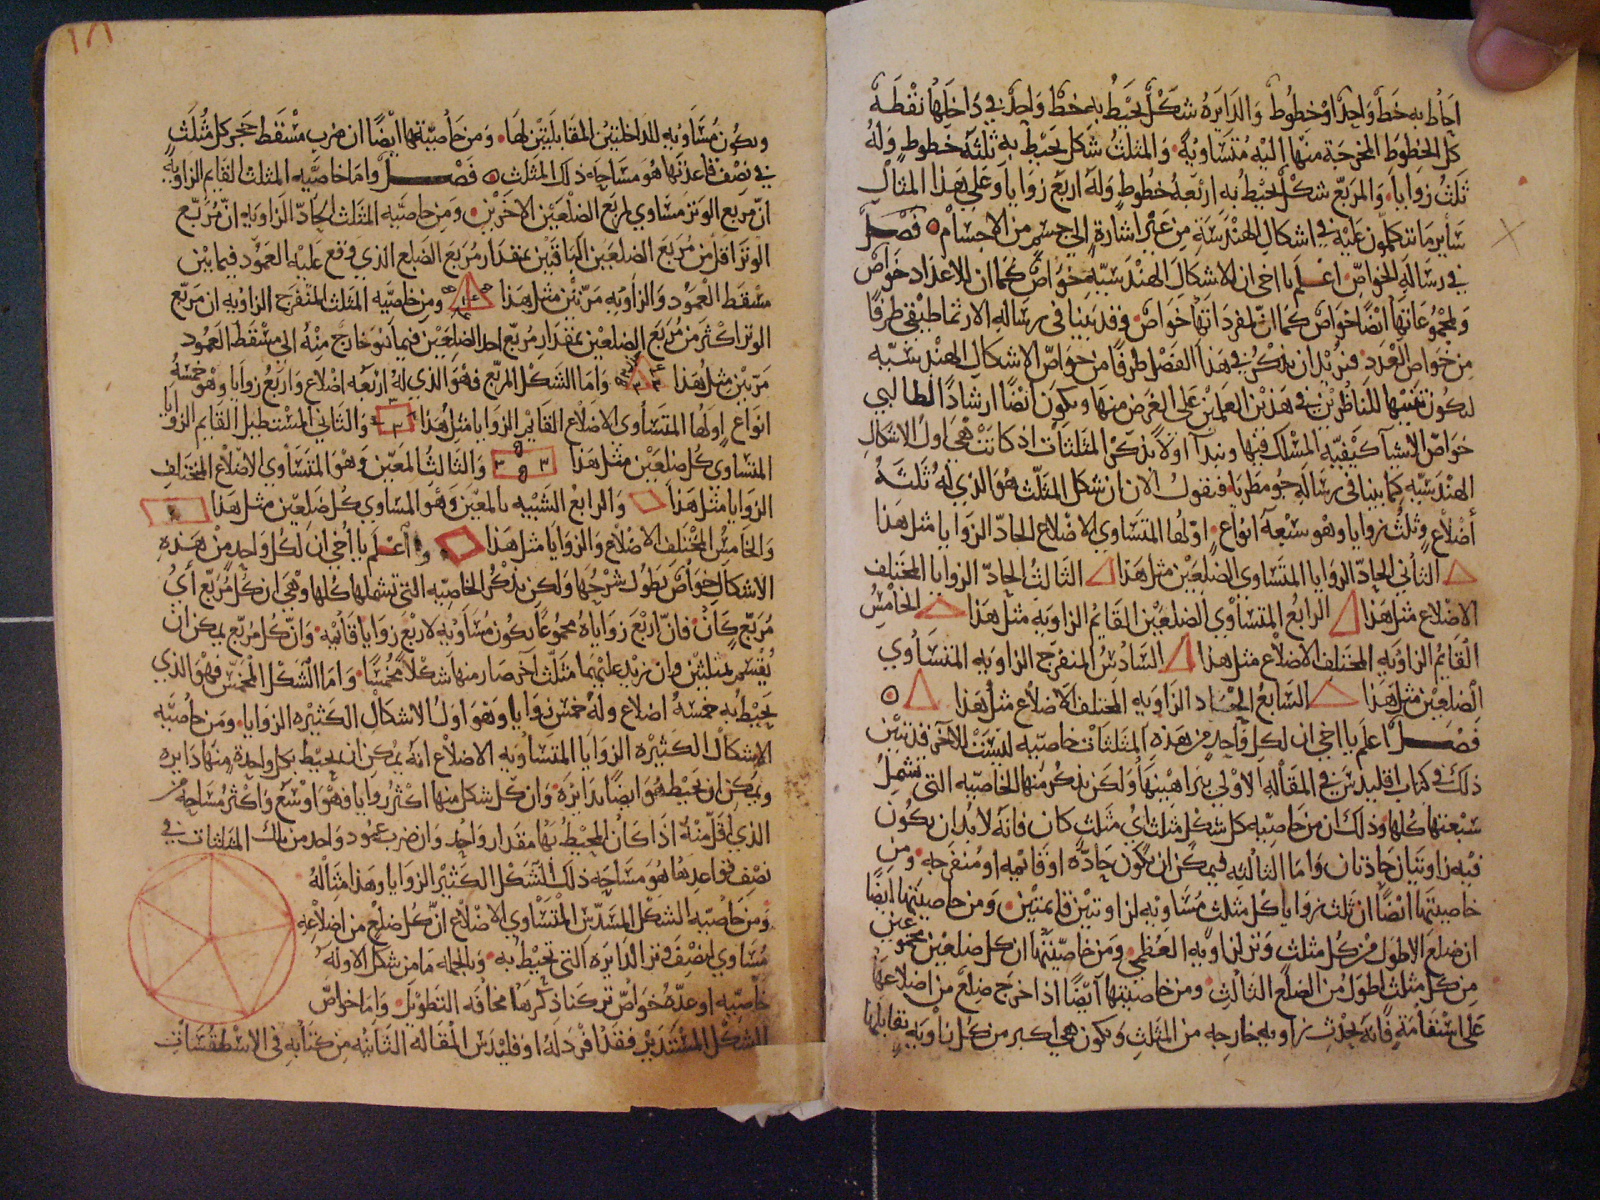 احاط به خط واحد او خطوط والدايره شكل يحيط به خط واحد في داخلها نقطة
كل الخطوط المخرجة منها اليه متساوية والمثلث شكل يحيط به ثلثة خطوط وله
ثلث زوايا والمربع شكل يحيط به اربعة خطوط وله اربع زوايا وعلى هذا المثال
ساير ما يتكلمون عليه في اشكال الهندسة من غير اشارة الى جسم من الاجسام فصل
في رسالة الخواص اعلم يا اخي ان الاشكال الهندسيه خواص كما ان للاعداد خواص
ولمجموعاتها ايضا خواص كما ان لمفرداتها خواص وقد بينا في رسالة الارثماطيقي طرفا
من خواص العدد فنريد ان نذكر في هذا الفصل طرفا من خواص الاشكال الهندسيه
ليكون تنبيها للناظرين في هذين العلمين على الغرض منها ويكون ايضا ارشادا لطالبي
خواص الاشيا كيفيه المسلك فيها ونبدا اولا بذكر المثلثات اذ كانت هي اول الاشكال
الهندسيه كما بينا في رسالة جومطريا فنقول الان ان شكل المثلث هو الذي له ثلثة
أضلاع وثلث زوايا وهو سبعة انواع اولها المتساوي الاضلاع الحاد الزوايا مثل هذا
الثاني الحاد الزوايا المتساوي الضلعين مثل هذا الثالث الحاد الزوايا المختلف
الاضلاع مثل هذا الرابع المتساوي الضلعين القايم الزاويه مثل هذا الخامس
القايم الزاويه المختلف الاضلاع مثل هذا السادس المنفرج الزاويه المتساوي
الضلعين مثل هذا السابع الزاويه المختلف الاضلاع مثل هذا
فصل اعلم يا اخي ان لكل واحد من هذه المثلثات خاصيه ليست للاخر قد تبين
ذلك في كتاب اقليدس في المقاله الاولى ببراهينها ولكن نذكر منها الخاصيه التي تشمل
سبعتها كلها وذلك ان من خاصيه كل شكل مثلث اي مثلث كان فانه لا بد ان يكون
فيه زاويتان حادتان واما الثالثه فيمكن ان يكون حادة او قائمه او منفرجه ومن
خاصيتها ايضا ان ثلث زوايا كل مثلث مساويه لزاويتين قايمتين ومن خاصيتها ايضا
ان ضلع الاطول من كل مثلث وتر لزاويه العظمى ومن خاصيتها ان كل ضلعين مجموعين
من كل مثلث اطول من الضلع الثالث ومن خاصيتها ايضا اذا اخرج ضلع من اضلاعها
على استقامة فانه يحدث زاويه خارجه من المثلث وتكون هي اكبر من كل زاويه تقابلها
١٨
ويكون مساويه للداخلتين المقابلتين لها ومن خاصيتها ايضا ان ضرب مسقط حجر كل مثلث
في نصف قاعدتها هو مساحه ذلك المثلث فصل واما خاصيه المثلث القايم الزاويه
ان مربع الوتر مساوي لمربع الضلعين الاخرين ومن خاصيه المثلث الحاد الزاويه ان مربع
الوتر اقل من مربع الضلعين الباقيين بمقدار مربع الضلع الذي وقع عليه العمود فيما بين
مسقط العمود والزاويه مرتين مثل هذا ومن خاصيه المثلث المنفرج الزاويه ان مربع
الوتر اكثر من مربع الضلعين بمقدار مربع احد الضلعين فيما هو خارج منه الى مسقط العمود
مرتين مثل هذا واما الشكل المربع فهو الذي له اربعه اضلاع واربع زوايا وهو خمسة
انواع اولها المتساوي الاضلاع القايم الزوايا مثل هذا والثاني المستطيل القايم الزوايا
المتساوي كل ضلعين مثل هذا والثالث المعين وهو المتساوي الاضلاع المختلف
الزوايا مثل هذا والرابع الشبيه بالمعين وهو المساوي كل ضلعين مثل هذا
والخامس المختلف الاضلاع والزوايا مثل هذا واعلم يا اخي ان لكل واحد من هذه
الاشكال خواص يطول شرحها ولكن نذكر الخاصيه التي تشملها كلها وهي ان كل مربع أي
مربع كان فان اربع زواياه مجموعا يكون مساويه لاربع زوايا قائمه وان كل مربع يمكن ان
يقسم بمثلثين وان زيد عليهما مثلث اخر صار منها شكلا مخمسا واما الشكل المخمس فهو الذي
يحيط به خمسة اضلاع وله خمس زوايا وهو اول الاشكال الكثيره الزوايا ومن خاصيه
الاشكال الكثيره الزوايا المتساويه الاضلاع انه يمكن ان يحيط بكل واحدة منها دايره
ويمكن ان يحيط هو ايضا بدايرة وان كل شكل منها اكثر زوايا وهو اوسع واكثر مساحه من
الذي اقل منه اذا كان المحيط بها مقدار واحد وان ضرب عمود واحد من تلك المثلثات في
نصف قواعدها هو مساحه ذلك الشكل الكثير الزوايا وهذا مثاله
ومن خاصيه الشكل المسدس المتساوي الاضلاع ان كل ضلع من اضلاعه
مساوي لنصف وتر الدايره التي تحيط به وبالجمله ما من شكل الا وله
خاصيه او عدة خواص تركنا ذكرها مخافه التطويل واما خواص
الشكل المستدير فقد افرد له اوقليدس المقاله الثانيه من كتابه في الاسطقسات